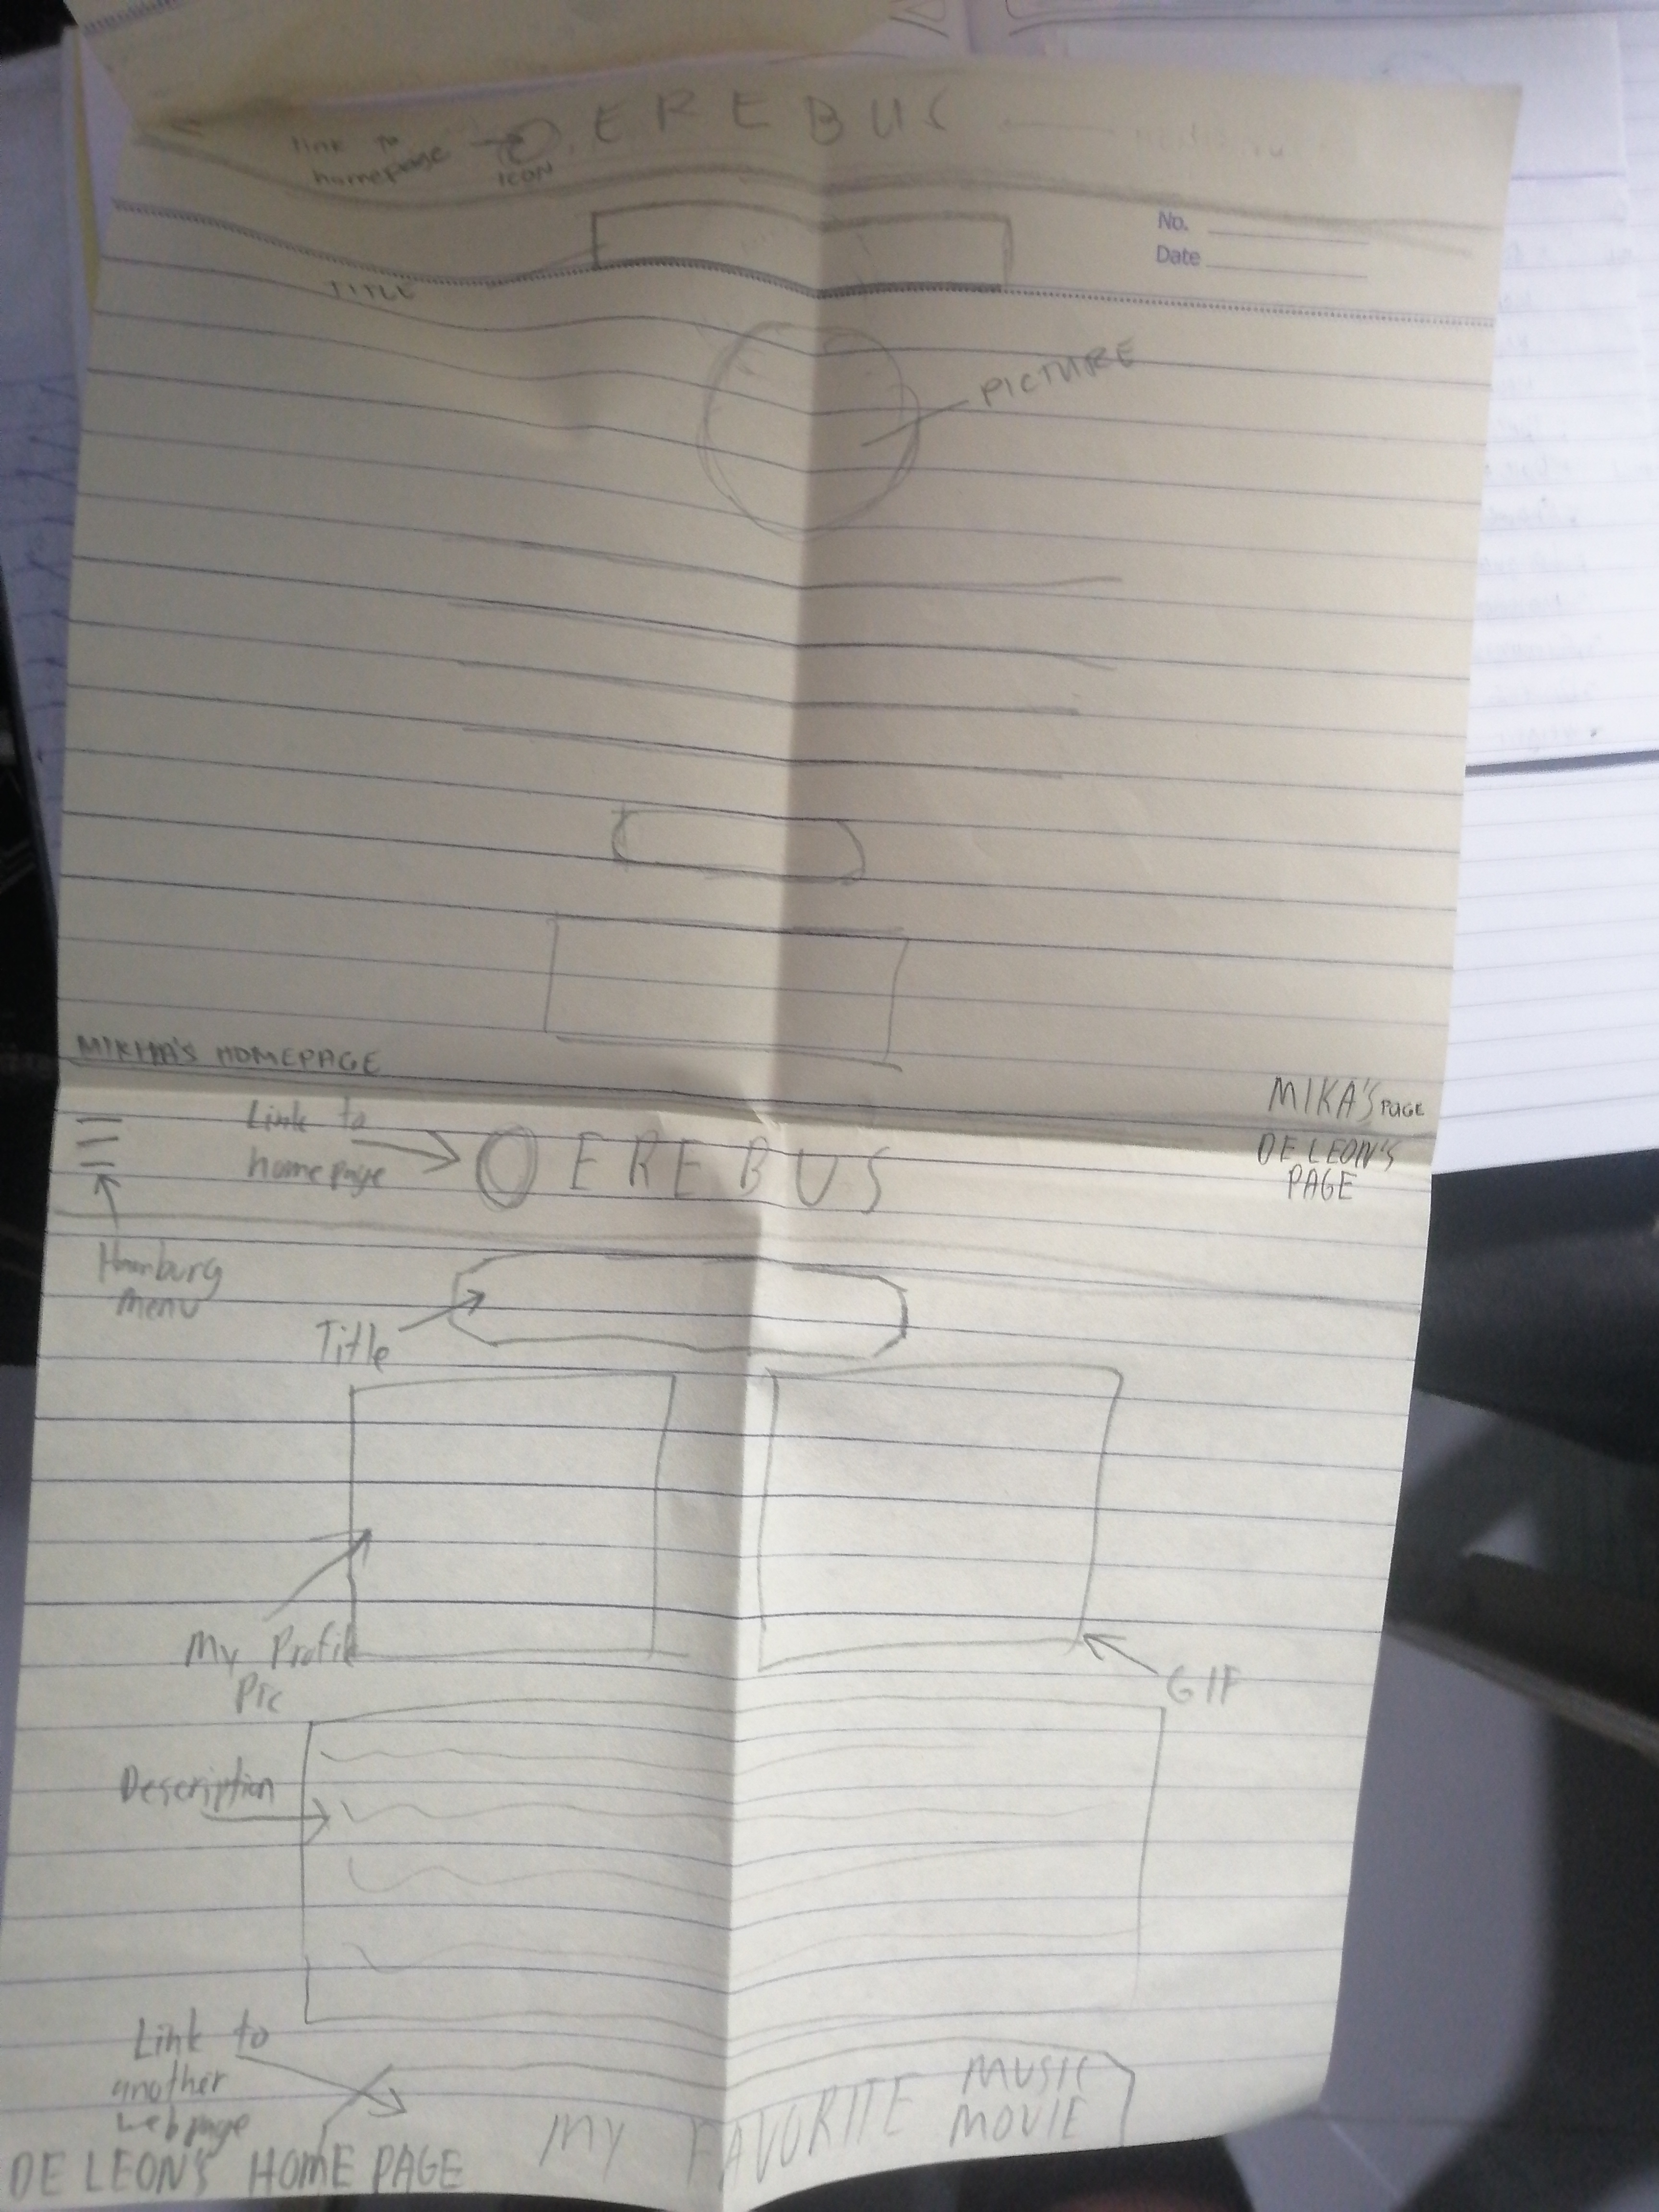 link to
homepage
ICON
EREBUS
No.
Date
TITLE
PICTURE
MIKHA'S HOMEPAGE
MIKA'S PAGE
DE LEON'S
PAGE
Link to
homepage
EREBUS
Hamburg
menu
Title
My Profile
Pic
GIF
Description
Link to
another
webpage
MY FAVORITE MUSIC
MOVIE
DE LEON'S HOME PAGE